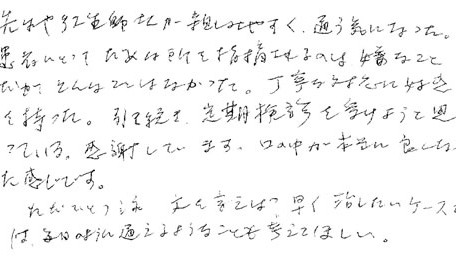 先生や衛生師さんが親しみやすく、通う気になった。
患者にとってたみは所を指摘されるのは嫌なこと
だが、そんなことはなかった。丁寧な対応に好感
を持った。引き続き、定期検診を受けようと思
っている。感謝しています。口の中が本当に良くなっ
た感じです。
ただひとつ 文を言えば、早く治したいケース
は、毎日のように通えるようなことも考えてほしい。